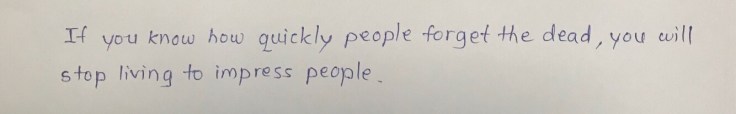 If you know how quickly people forget the dead, you will
stop living to impress people.